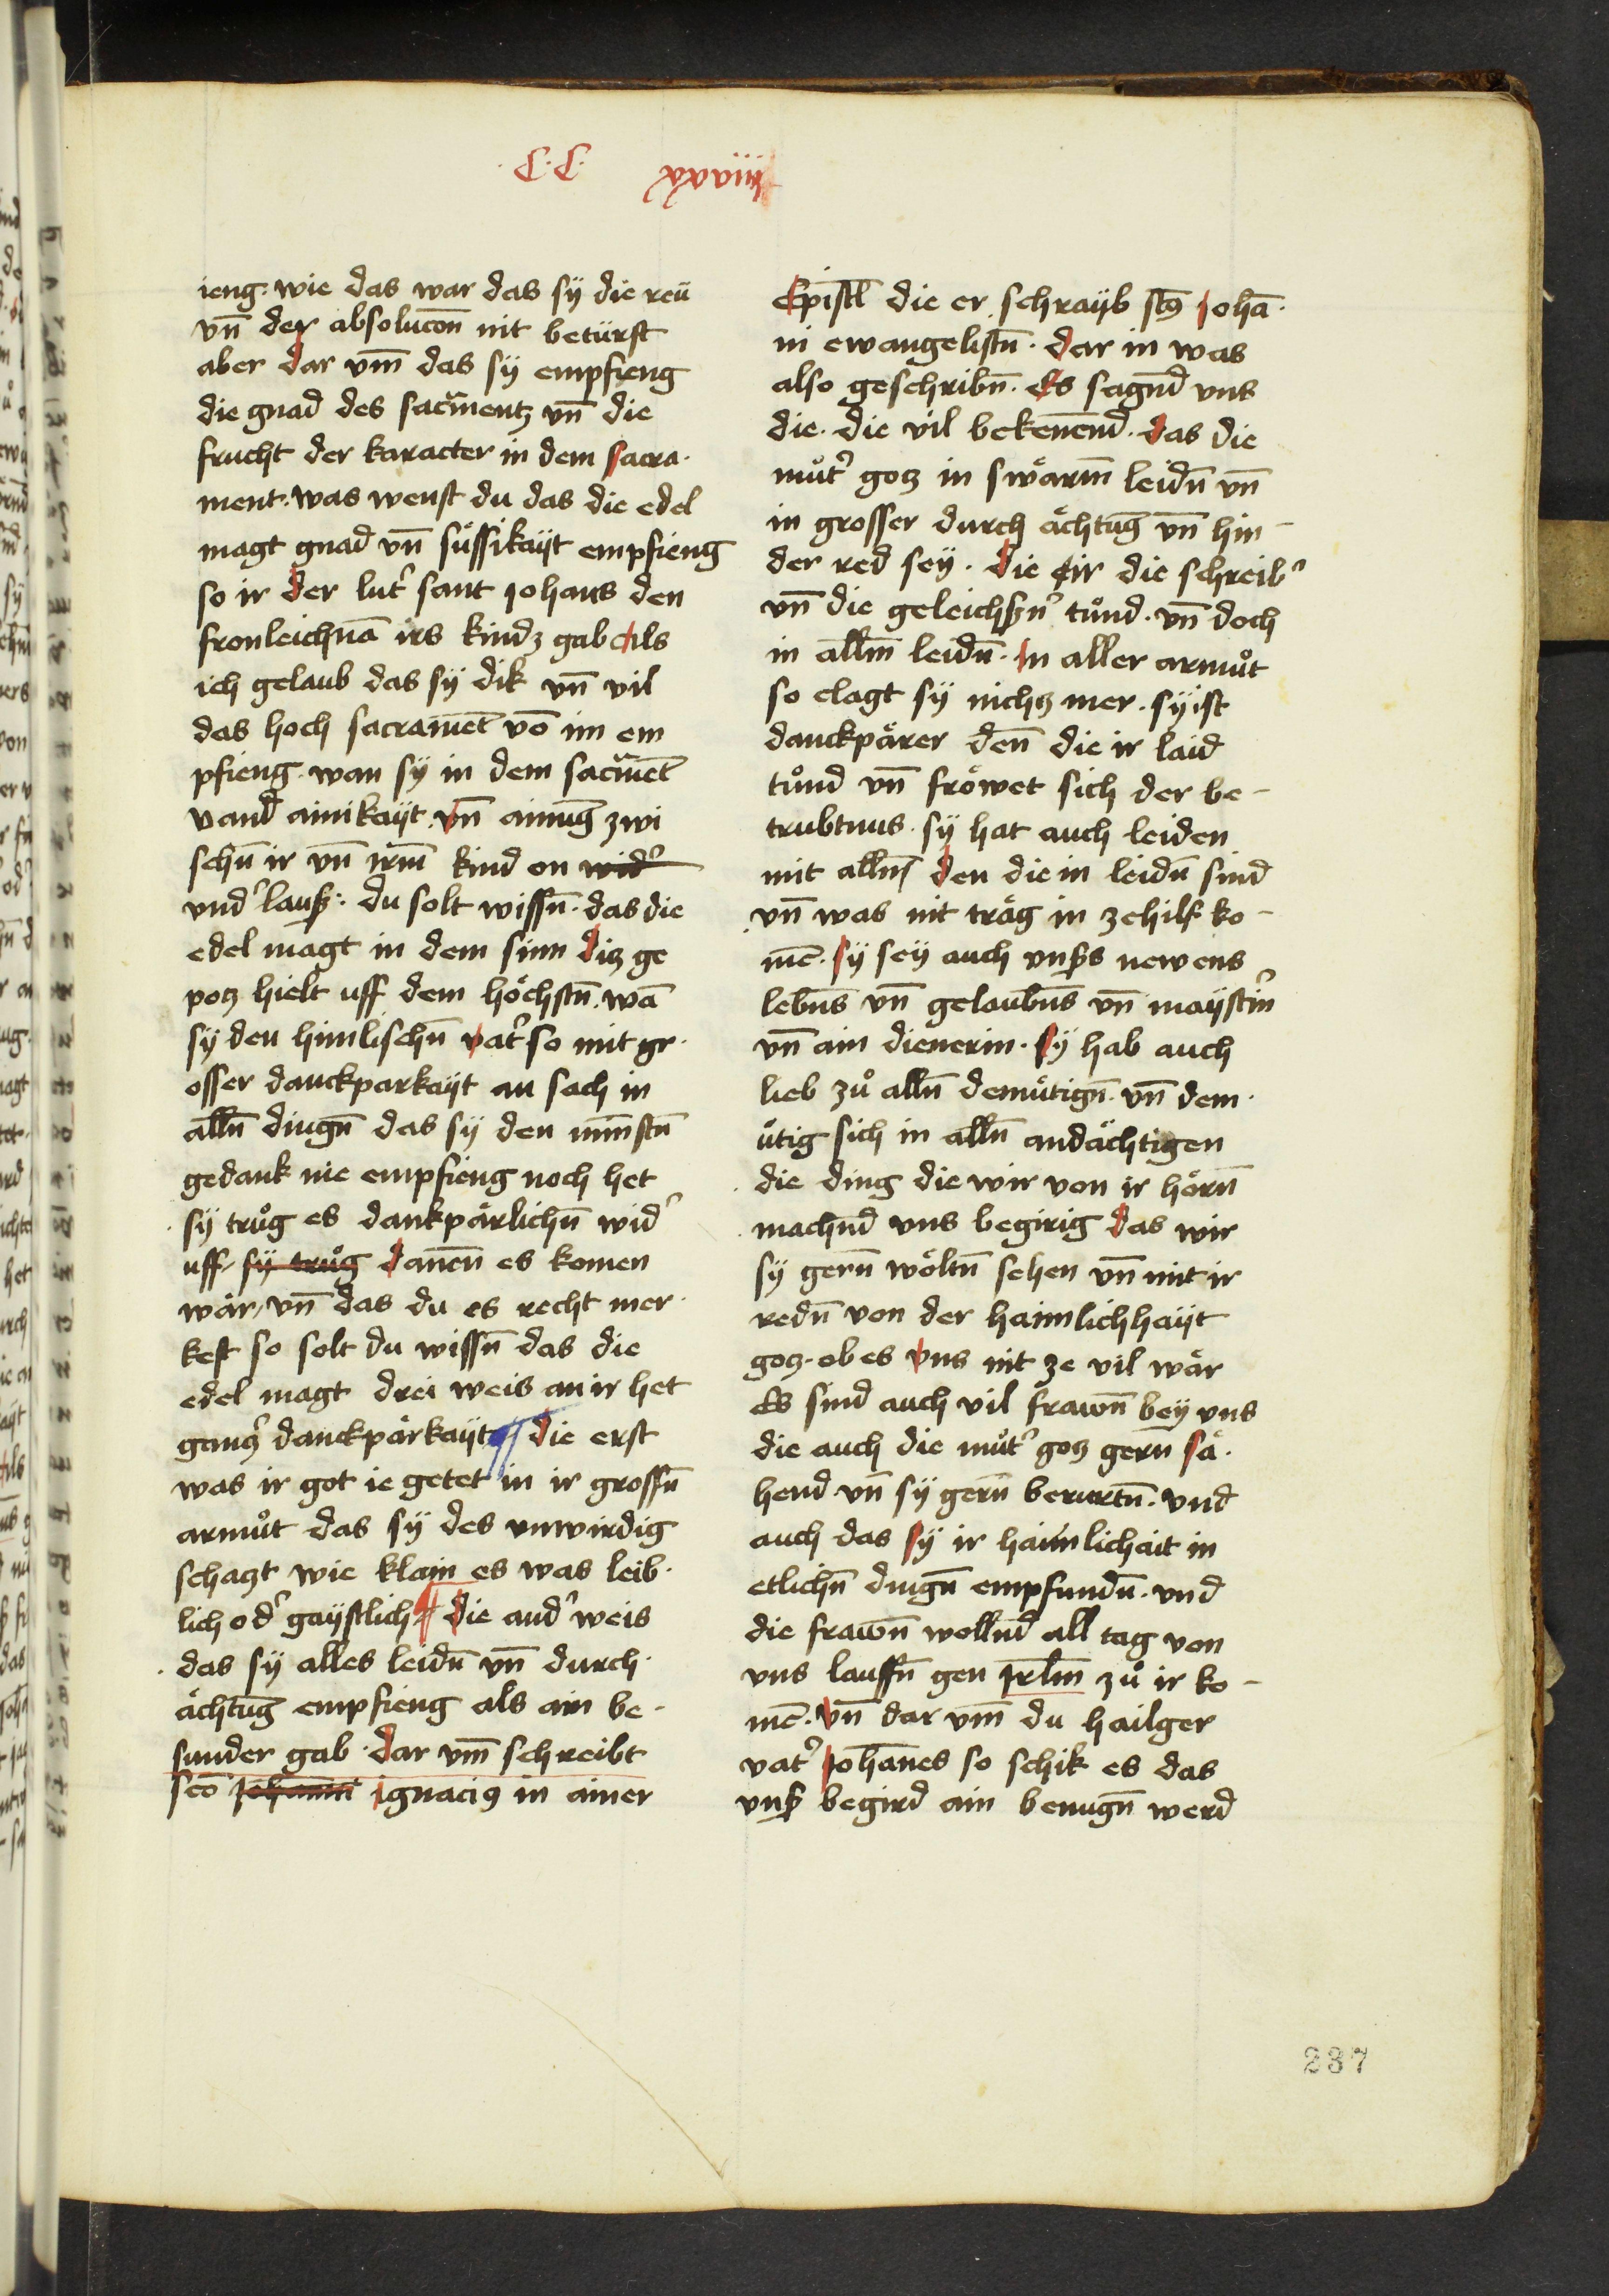 ·C·C· xxxviiij
ieng. wie das war das sÿ die reü
vn̄ der absolucōn nit betürft
aber dar vm̄ das sÿ empfieng
die gnad des sacm̄entz vn̄ die
frucht der karacter in dem sacra·
ment. was wenst du das die edel
magt gnad vn̄ süssikaÿt empfieng
so ir der lut᾽ sant johans den
fronleichnā irs kindz gab Als
ich gelaub das sÿ dik vn̄ vil
das hoch sacramēt vō im em
pfieng. wan sÿ in dem sacm̄ēt
vand ainikaÿt. vn̄ ainūg zwi
schn̄ ir vn̄ irm̄ kind on wid᾽
vnd᾽ lauß: du solt wissn̄. das die
edel magt in dem sinn diz ge
potz hielt uff dem höchstn̄. wā
sÿ den himlischn̄ vat᾽ so mit gr·
osser danckparkaÿt an sach in
alln̄ dingn̄ das sÿ den minstn̄
gedank nie empfieng noch het
sÿ trůg es dankpärlichn̄ wid᾽
uff, sÿ trůg danēn es komen
wär, vn̄ das du es recht mer·
kest so solt du wissn̄ das die
edel magt drei weis an ir het
gantz᾽ danckpärkaÿt ¶ die erst
was ir got ie getet in ir grossn̄
armůt das sÿ des unwirdig
schatzt wie klain es was leib·
lich od᾽ gaÿstlich ¶ die and᾽ weis
das sÿ alles leidn̄ vn̄ durch·
ächtūg empfieng als ain be·
sunder gab. dar vm̄ schreibt
scō johanni ignaci9 in ainer
Epistl̄ die er schraÿb scō johā·
ni ewangelistn̄. dar in was
also geschribn̄. Es sagnd̄ vns
die. die vil bekenēnd. das die
můt᾽ gotz in swärm̄ leidn̄ vn̄
in grosser durch ächtūg vn̄ hin-
der red seÿ. die ir die schreib᾽
vn̄ die geleichßn᾽ tůnd. vn̄ doch
in allm̄ leidn̄. In aller armůt
so clagt sÿ nichtz mer. sÿ ist
danckpärer den̄ die ir laid
tůnd vn̄ fröwet sich der be-
trubtnus. sÿ hat auch leiden
mit alln̄ den die in leidn̄ sind
vn̄ was nit träg in ze hilf ko-
mē. sÿ seÿ auch vnßs newens
lebn̄s vn̄ gelaubn̄s vn̄ maÿst᾽in
vn̄ ain dienerin. sÿ hab auch
lieb zů alln̄ demütign̄. vn̄ dem·
ütig sich in alln̄ andächtigen
die ding die wir von ir hörn̄
machnd̄ vns begirig das wir
sÿ gern̄ wöltn̄ sehen vn̄ mit ir
redn̄ von der haimlichhaÿt
gotz. ob es vns nit ze vil wär
Es sind auch vil frawn̄ beÿ vns
die auch die můt᾽ gotz gern sä·
hend vn̄ sÿ gern̄ berurtn̄. vnd
auch das sÿ ir haimlichait in
etlichn̄ dingn̄ empfundn̄. vnd
die frawn̄ wollnd̄ all tag von
vns lauffn̄ gen jrlm̄ zů ir ko-
mē. vn̄ dar vm̄ du hailger
vat᾽ johānes so schik es das
vnß begird ain benugn̄ werd
237